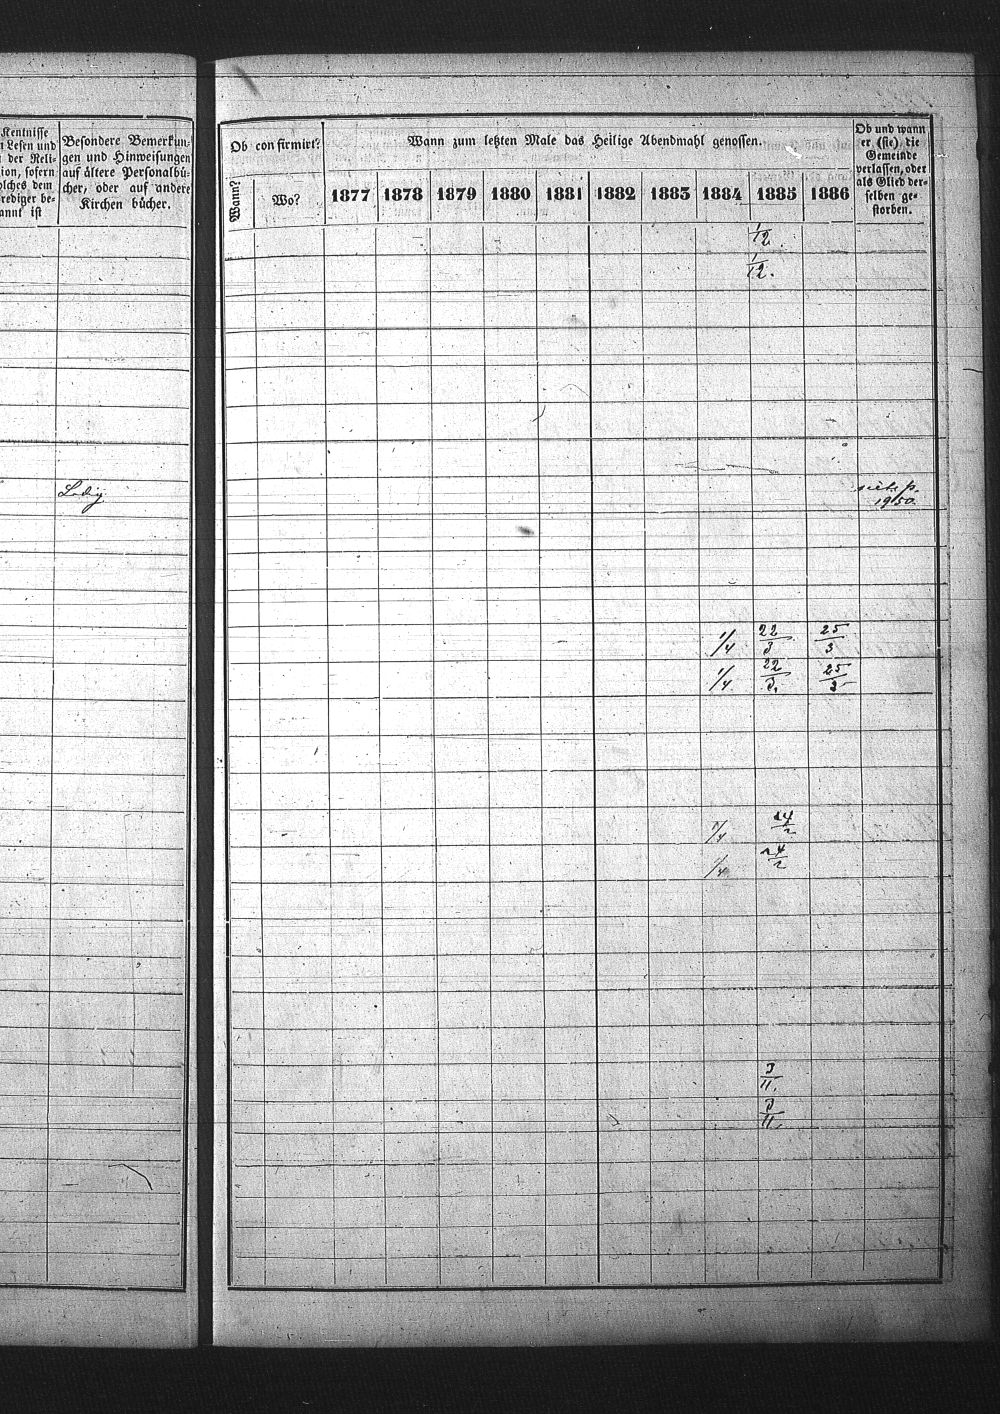 Kentnisse
n Lesen und
n der Reli-
ion, sofern
olches dem
rediger be-
annt ist
Besondere Bemerkun-
gen und Hinweisungen
auf ältere Personalbü-
cher, oder auf andere
Kirchen bücher.
Ledig
Ob confirmirt?
Wann?
Wo?
Wann zum letzten Male das Heilige Abendmahl genossen.
1877 1878 1879 1880 1881 1882 1883 1884 1885 1886
Ob und wann
er (sie) die
Gemeinde
verlassen, oder
als Glied der-
selben ge-
storben.
1/12.
1/12.
1950.
1/4 22/3 25/3
1/4 22/3. 25/3
1/4 24/2
1/4 24/2
3/11.
3/11.